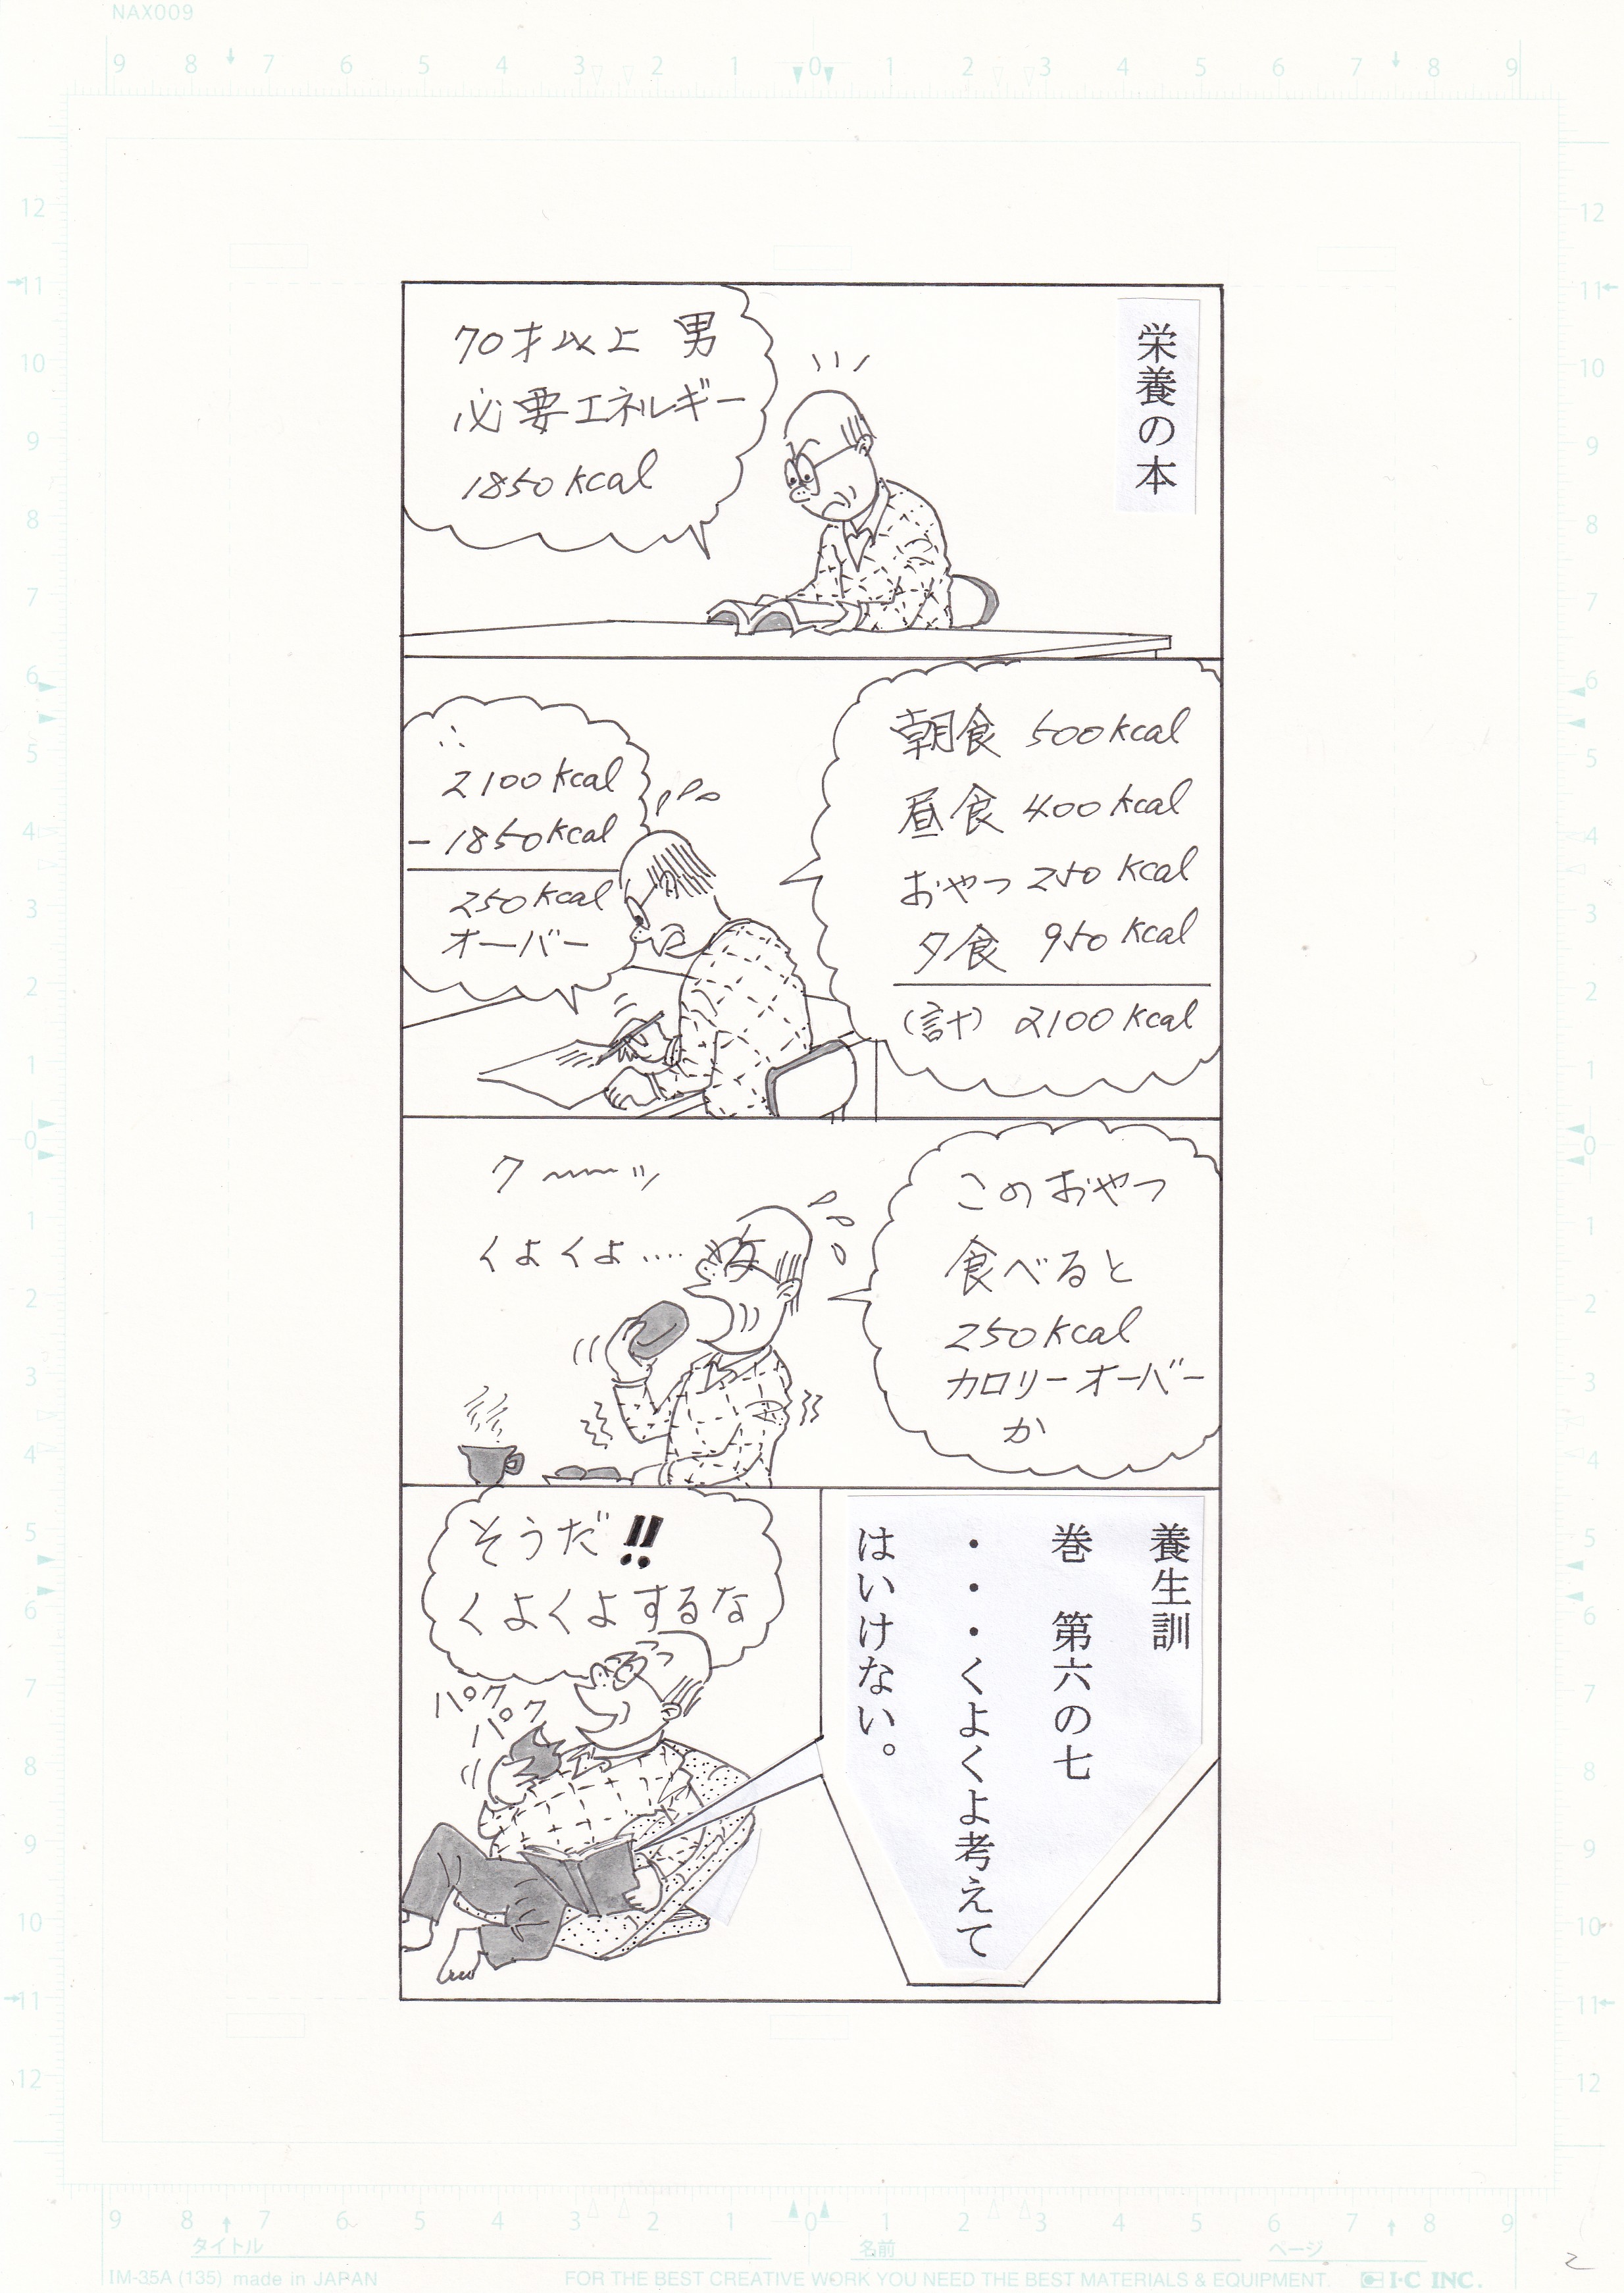 NAX009
栄養の本
70才以上 男
必要エネルギー
1850kcal
朝食 500kcal
昼食 400kcal
おやつ 250kcal
夕食 950kcal
(計) 2100kcal
∴
2100kcal
-1850kcal
250kcal
オーバー
このおやつ
食べると
250kcal
カロリーオーバー
か
ク〜〜〜ッ
くよくよ‥‥
養生訓
巻 第六の七
・・・くよくよ考えて
はいけない。
そうだ!!
くよくよするな
パク
パク
タイトル
名前
ページ
2
IM-35A (135) made in JAPAN
FOR THE BEST CREATIVE WORK YOU NEED THE BEST MATERIALS & EQUIPMENT.
I・C INC.